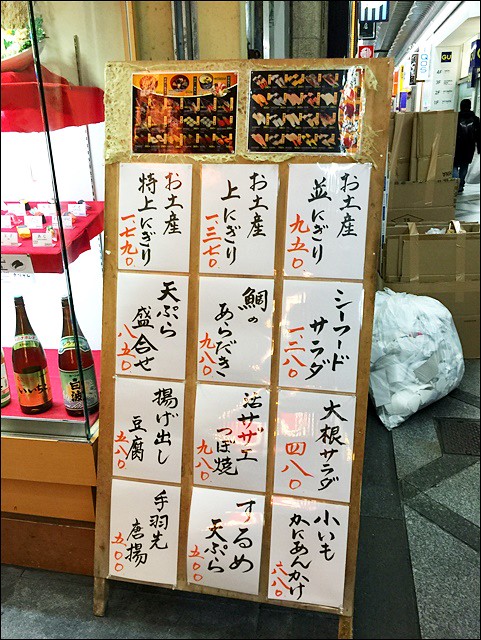 お土産
並にぎり
九五〇
お土産
上にぎり
一、三五〇
お土産
特上にぎり
一、七九〇
シーフード
サラダ
一、二八〇
鯛の
あらだき
九八〇
天ぷら
盛合せ
八五〇
大根サラダ
四八〇
活サザエ
つぼ焼
九八〇
揚げ出し
豆腐
五八〇
小いも
かにあんかけ
六八〇
するめ
天ぷら
五五〇
手羽先
唐揚
五〇〇
白波
GU